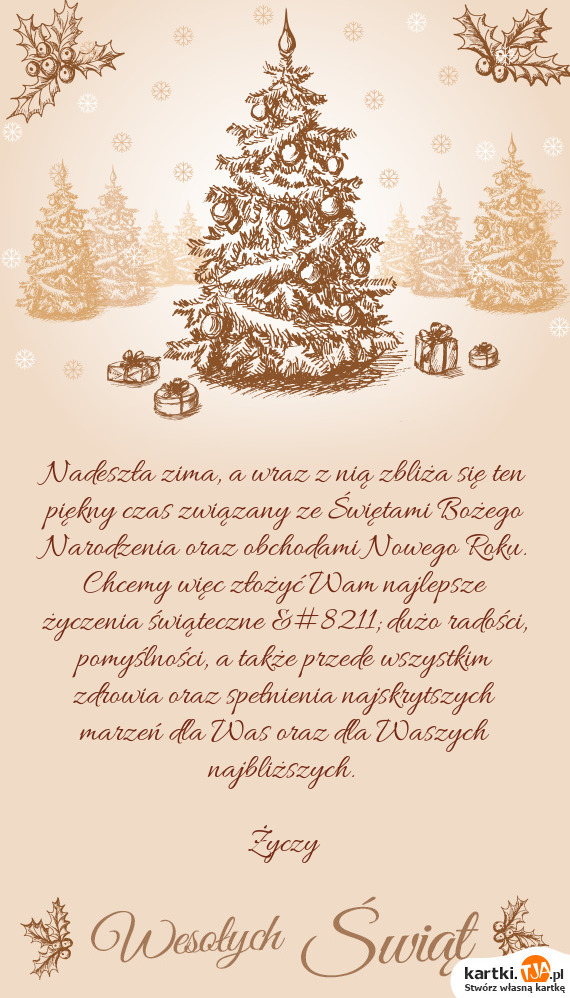 Nadeszła zima, a wraz z nią zbliża się ten
piękny czas związany ze Świętami Bożego
Narodzenia oraz obchodami Nowego Roku.
Chcemy więc złożyć Wam najlepsze
życzenia świąteczne &#8211; dużo radości,
pomyślności, a także przede wszystkim
zdrowia oraz spełnienia najskrytszych
marzeń dla Was oraz dla Waszych
najbliższych.
Życzy
Wesołych Świąt
kartki.TJA.pl
Stwórz własną kartkę